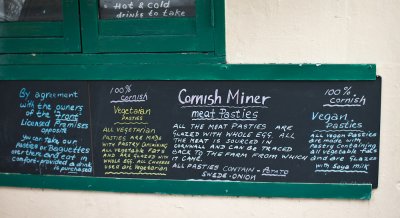 Hot & cold
drinks to take
By agreement
with the owners
of the "Front"
Licensed Premises
opposite
You can take our
Pasties or Baguettes
over there and eat in
comfort - provided a drink
is purchased
100%
cornish
Vegetarian
Pasties
ALL VEGETARIAN
PASTIES ARE MADE
WITH PASTRY CONTAINING
ALL VEGETABLE FATS
AND ARE GLAZED
WITH WHOLE EGG. ALL CHEESES
USED ARE VEGETARIAN
Cornish Miner
meat Pasties
ALL THE MEAT PASTIES ARE
GLAZED WITH WHOLE EGG. ALL
THE MEAT IS SOURCED IN
CORNWALL AND CAN BE TRACED
BACK TO THE FARM FROM WHICH
IT CAME.
ALL PASTIES CONTAIN - POTATO
SWEDE ONION
100%
cornish
Vegan
Pasties
All Vegan Pasties
are made with
Pastry containing
all vegetable fat
and are glazed
with Soya milk